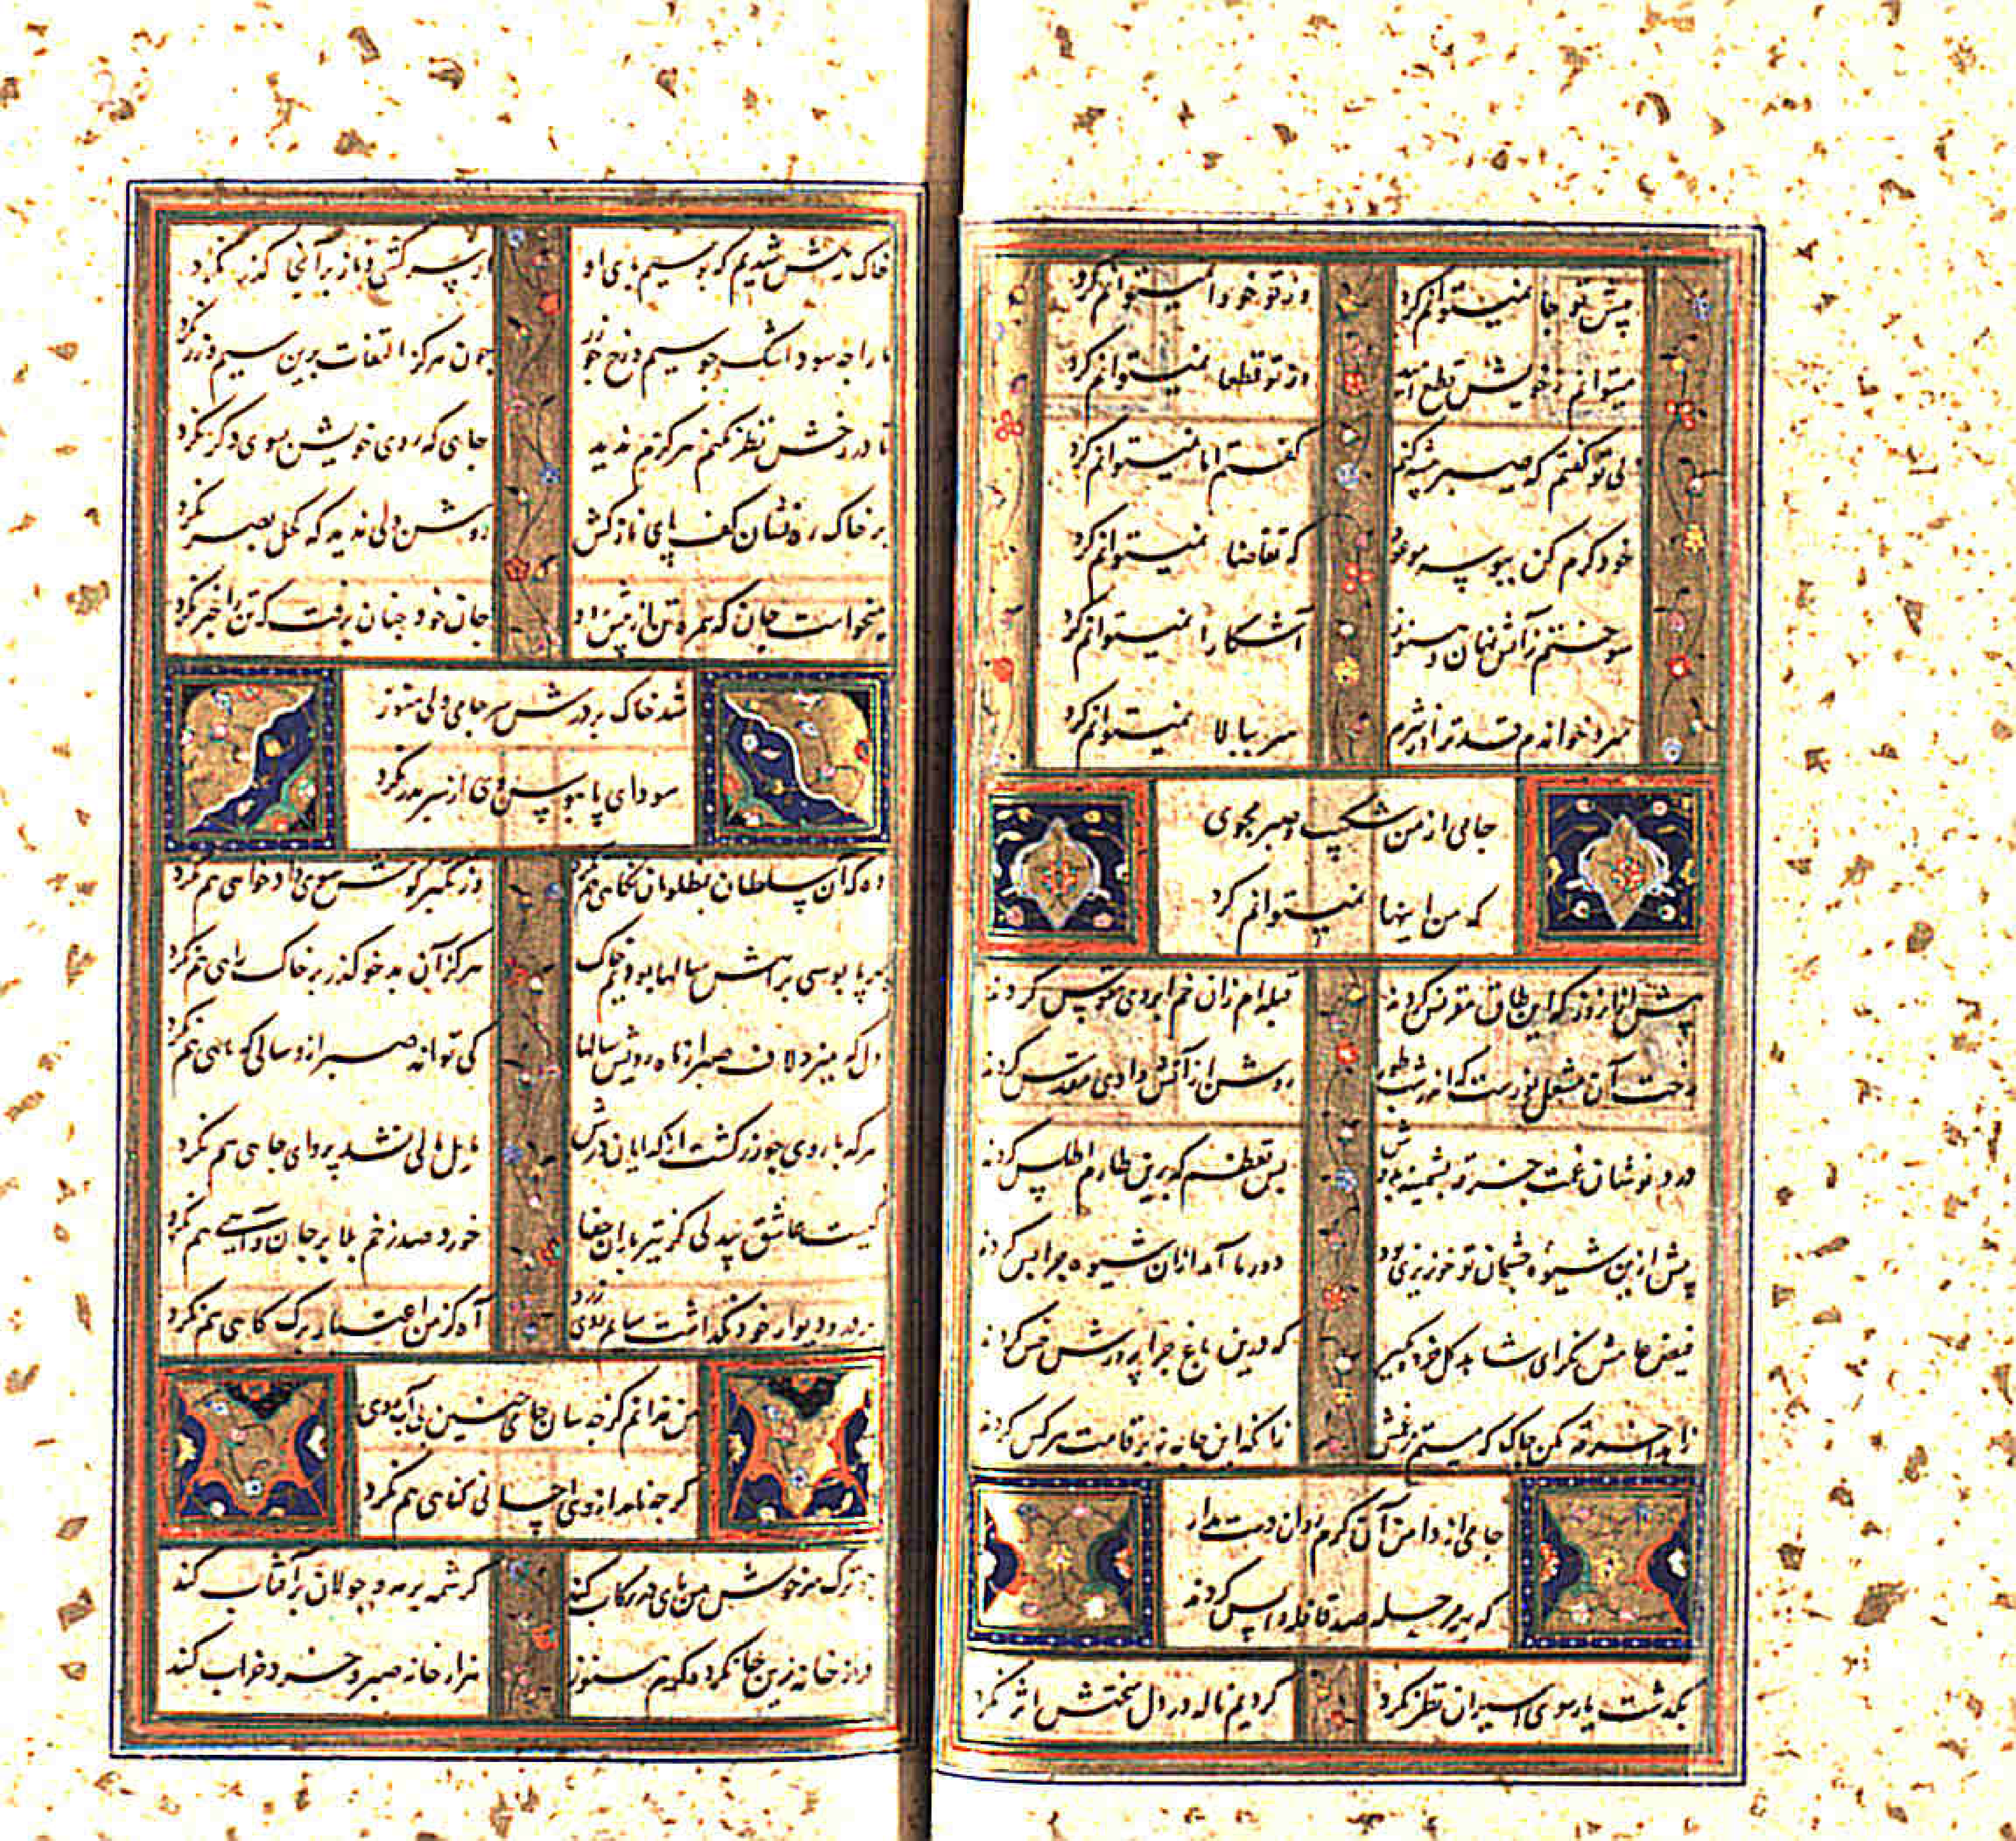 پیش تو جا نمیتوانم کرد
وز تو خود را نمیتوانم کرد
میتوانم ز خویش قطع امید
وز تو قطعا نمیتوانم کرد
بی تو گفتم که صبر پیشه کنم
گفتم اما نمیتوانم کرد
خود کرم کن ببوسه موعود
که تقاضا نمیتوانم کرد
سوختم ز آتش نهان و هنوز
آشکارا نمیتوانم کرد
سرو خواندم قدترا از شرم
سر ببالا نمیتوانم کرد
جامی از من شکیب و صبر مجوی
که من اینها نمیتوانم کرد
پیش از آنروز که این طاق مقرنس کردند
قبله ام زان خم ابروی مقوس کردند
رخت آن مشعل نورست که اندر شب طور
روشن از آتش وادی مقدس کردند
درد نوشان غمت خرقه پشمینه بدوش
بس تعظم که برین طارم اطلس کردند
پیش ازین شیوه چشمان تو خونریزی بود
دور ما آمد ازان شیوه چرا بس کردند
فیض عامش نگر ای شاهد گل خرده مگیر
که درین باغ چرا پرورش خس کردند
زاهدا خرقه مکن چاک که مستم ز غمش
زانکه این جامه نه بر قامت هر کس کردند
جامی از دامن آن گرم روان دست مدار
که بهر مرحله صد قافله واپس کردند
بگذشت یار و سوی اسیران نظر نکرد
کردیم ناله در دل سختش اثر نکرد
خاک رهش شدیم که بوسیم پای او
از سرکشی و ناز بر آنجا گذر نکرد
ما را چه سود اشک چو سیم و رخ چو زر
چون هرگز التفات برین سیم و زر نکرد
تا در رخش نظر نکنم هرگزم ندید
جایی که روی خویشتن سوی دگر نکرد
بر خاک ره نشان کف پای نازکش
روشن دلی ندید که کحل بصر نکرد
میخواست جان که همره تن از پیش او رود
جان خود چنان برفت که تن را خبر نکرد
شد خاک بر درش سر جامی ولی هنوز
سودای پایبوس وی از سر بدر نکرد
وه که آن سلطان بمظلومان نگاهی هم نکرد
وز تکبر گوش سوی دادخواهی هم نکرد
بهر پابوسی براهش سالها بودیم خاک
هرگز آن بدخو گذر بر خاک راهی هم نکرد
دل که میزد لاف صبر از ماه رویش سالها
کی تواند صبر ازو سالی که ماهی هم نکرد
هر که با روی چو زر گشت از گدایان درش
میل مالی نشد پروای جاهی هم نکرد
کیست عاشق بیدلی کز تیر باران جفا
خورد صد زخم بلا بر جان و آهی هم نکرد
بر در و دیوار خود نگذاشت سایم روی زرد
آه کز من اعتبار برگ کاهی هم نکرد
من ندانم کز چه سان جامی چنین بی آبروی
گرچه نامد از وی احسانی گناهی هم نکرد
چو ترک سرخوش من پای در رکاب کند
کرشمه بر مه و جولان بر آفتاب کند
هزار خانه صبر و خرد خراب کند